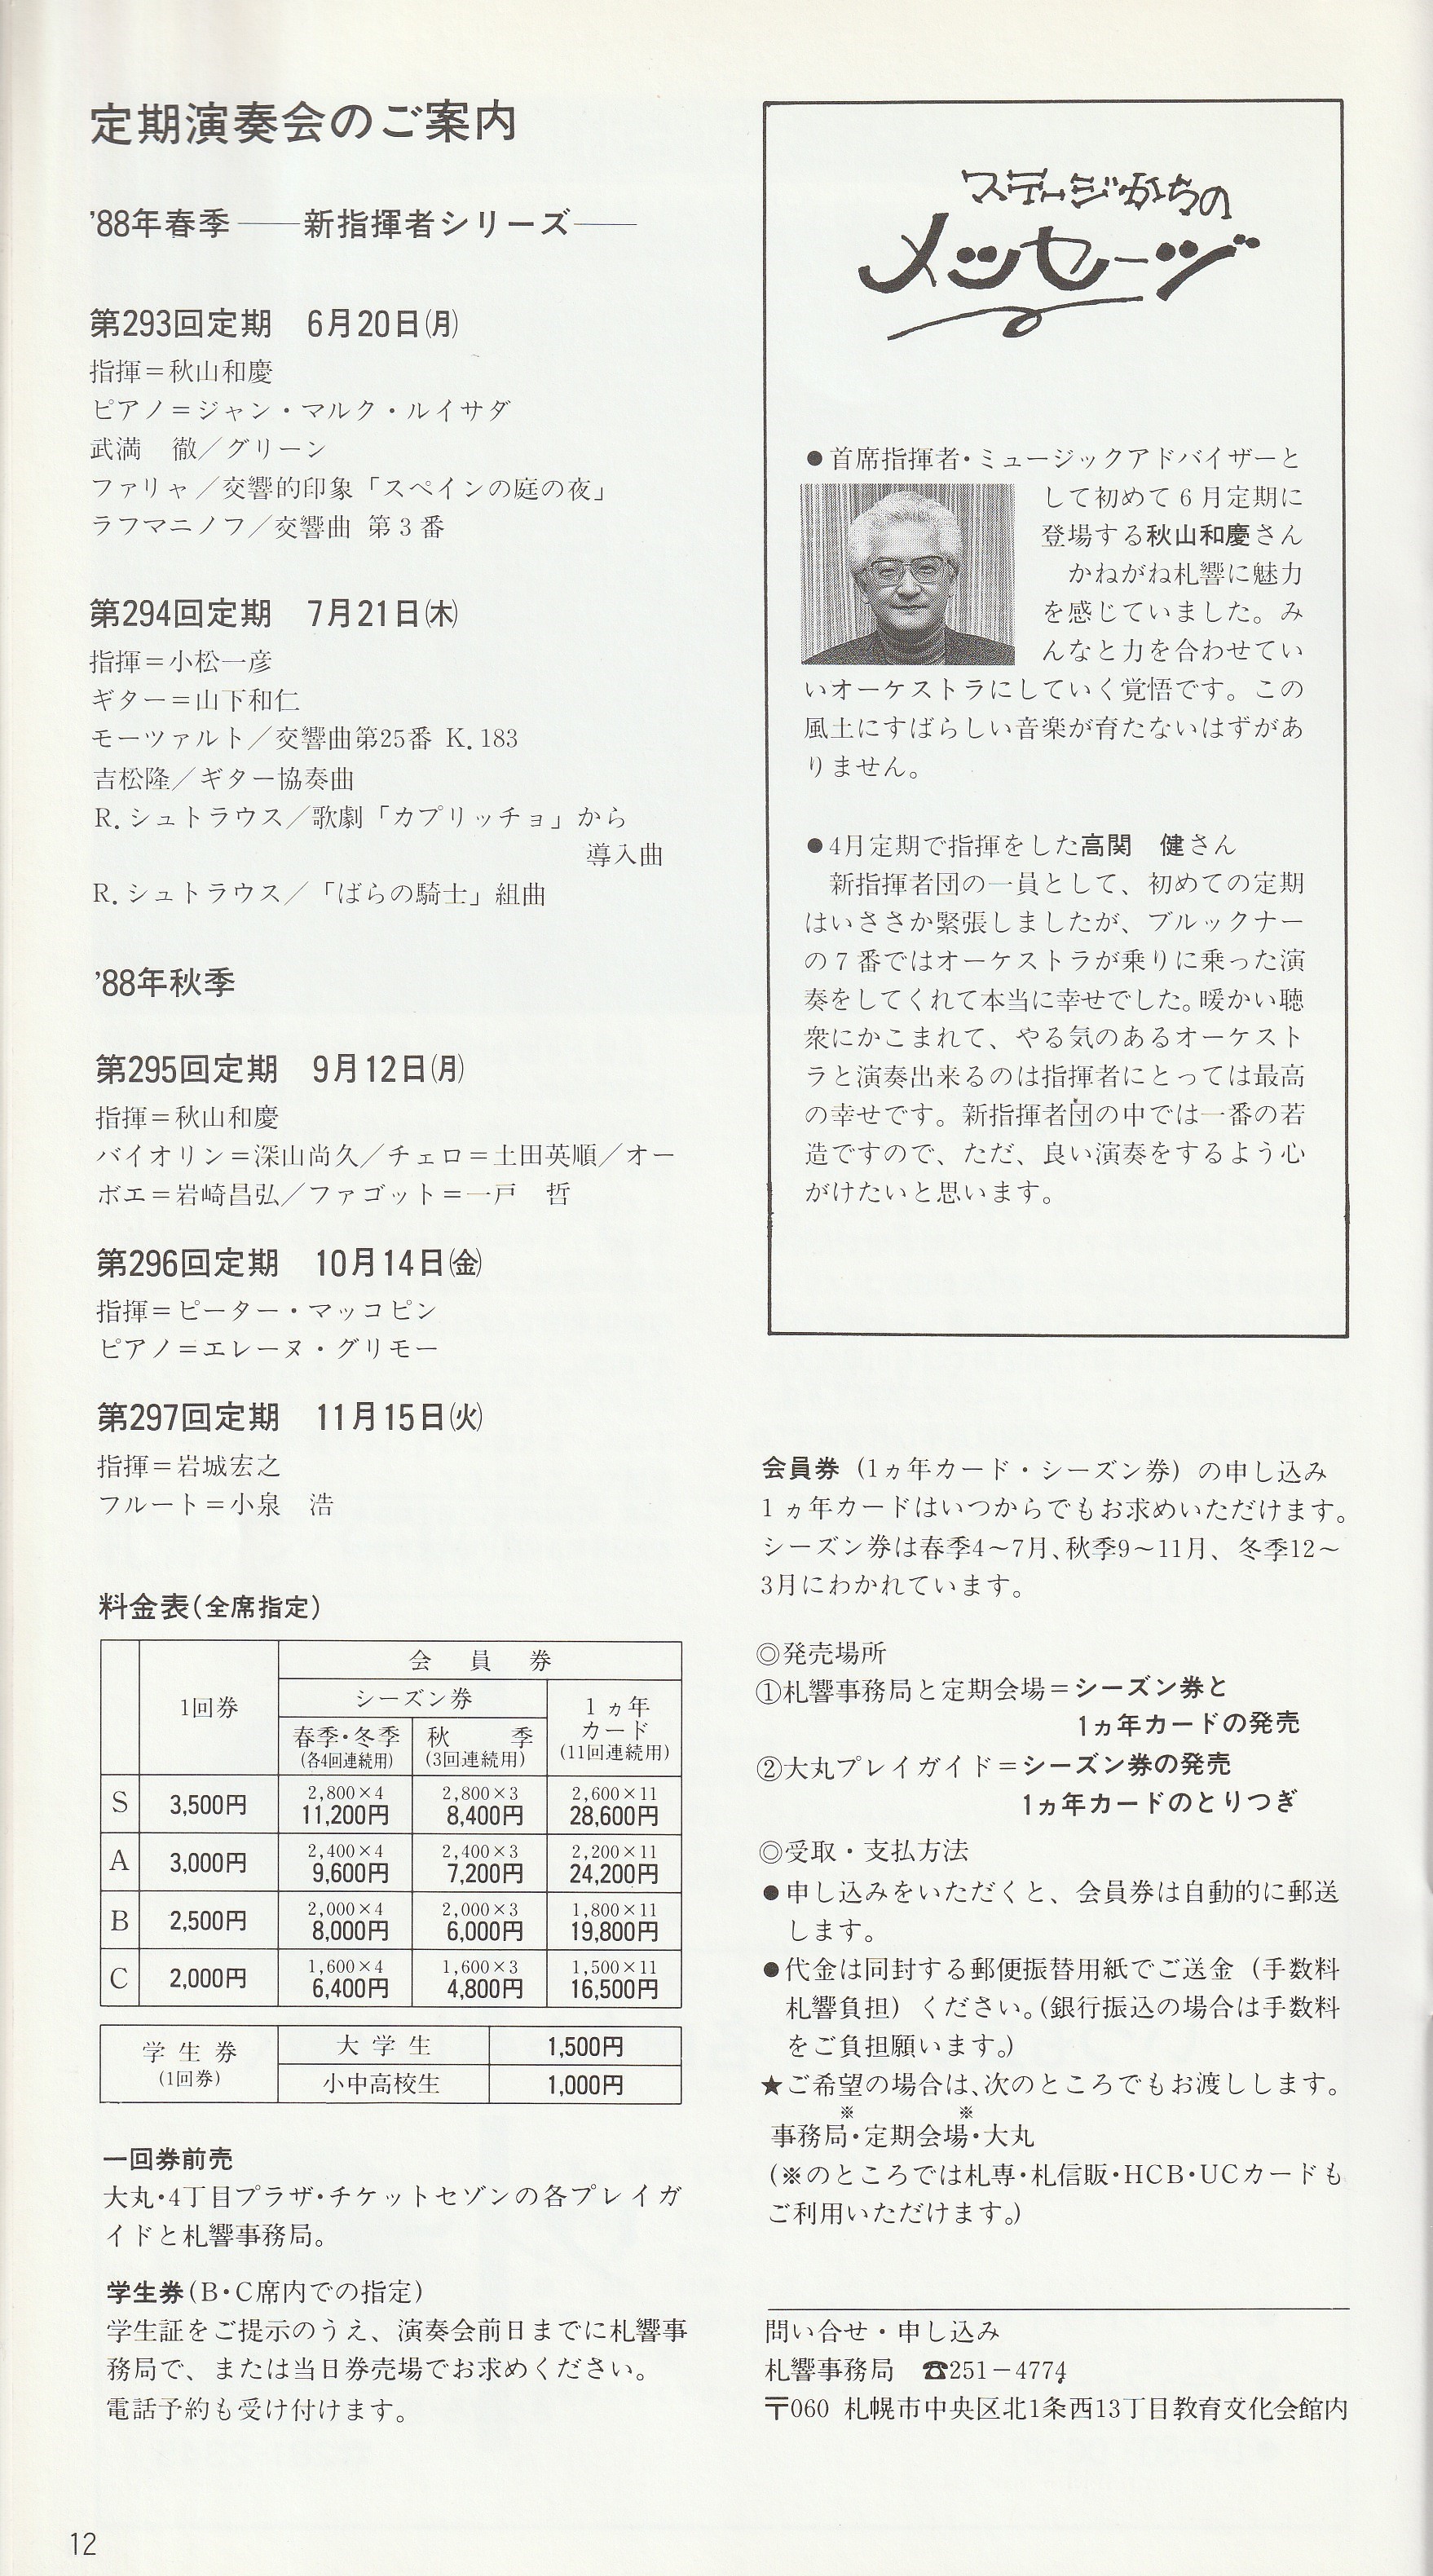 定期演奏会のご案内
’88年春季——新指揮者シリーズ——
第293回定期　6月20日㈪
指揮＝秋山和慶
ピアノ＝ジャン・マルク・ルイサダ
武満　徹／グリーン
ファリャ／交響的印象「スペインの庭の夜」
ラフマニノフ／交響曲 第3番
第294回定期　7月21日㈭
指揮＝小松一彦
ギター＝山下和仁
モーツァルト／交響曲第25番 K.183
吉松隆／ギター協奏曲
R.シュトラウス／歌劇「カプリッチョ」から
導入曲
R.シュトラウス／「ばらの騎士」組曲
’88年秋季
第295回定期　9月12日㈪
指揮＝秋山和慶
バイオリン＝深山尚久／チェロ＝土田英順／オー
ボエ＝岩崎昌弘／ファゴット＝一戸　哲
第296回定期　10月14日㈮
指揮＝ピーター・マッコピン
ピアノ＝エレーヌ・グリモー
第297回定期　11月15日㈫
指揮＝岩城宏之
フルート＝小泉　浩
料金表(全席指定)
1回券
会　員　券
シーズン券
1ヵ年
カード
(11回連続用)
春季・冬季
(各4回連続用)
秋　季
(3回連続用)
2,800×4 2,800×3 2,600×11
S 3,500円 11,200円 8,400円 28,600円
2,400×4 2,400×3 2,200×11
A 3,000円 9,600円 7,200円 24,200円
2,000×4 2,000×3 1,800×11
B 2,500円 8,000円 6,000円 19,800円
1,600×4 1,600×3 1,500×11
C 2,000円 6,400円 4,800円 16,500円
学生券
(1回券)
大学生 1,500円
小中高校生 1,000円
一回券前売
大丸・4丁目プラザ・チケットセゾンの各プレイガ
イドと札響事務局。
学生券(B・C席内での指定)
学生証をご提示のうえ、演奏会前日までに札響事
務局で、または当日券売場でお求めください。
電話予約も受け付けます。
12
ステージからの
メッセージ
●首席指揮者・ミュージックアドバイザーと
して初めて6月定期に
登場する秋山和慶さん
かねがね札響に魅力
を感じていました。み
んなと力を合わせてい
いオーケストラにしていく覚悟です。この
風土にすばらしい音楽が育たないはずがあ
りません。
●4月定期で指揮をした高関　健さん
新指揮者団の一員として、初めての定期
はいささか緊張しましたが、ブルックナー
の7番ではオーケストラが乗りに乗った演
奏をしてくれて本当に幸せでした。暖かい聴
衆にかこまれて、やる気のあるオーケスト
ラと演奏出来るのは指揮者にとっては最高
の幸せです。新指揮者団の中では一番の若
造ですので、ただ、良い演奏をするよう心
がけたいと思います。
会員券（1ヵ年カード・シーズン券）の申し込み
1ヵ年カードはいつからでもお求めいただけます。
シーズン券は春季4～7月、秋季9～11月、冬季12～
3月にわかれています。
◎発売場所
①札響事務局と定期会場＝シーズン券と
1ヵ年カードの発売
②大丸プレイガイド＝シーズン券の発売
1ヵ年カードのとりつぎ
◎受取・支払方法
●申し込みをいただくと、会員券は自動的に郵送
します。
●代金は同封する郵便振替用紙でご送金（手数料
札響負担）ください。(銀行振込の場合は手数料
をご負担願います。)
★ご希望の場合は、次のところでもお渡しします。
※　※
事務局・定期会場・大丸
(※のところでは札専・札信販・HCB・UCカードも
ご利用いただけます。)
問い合せ・申し込み
札響事務局　☎251－4774
〒060 札幌市中央区北1条西13丁目教育文化会館内